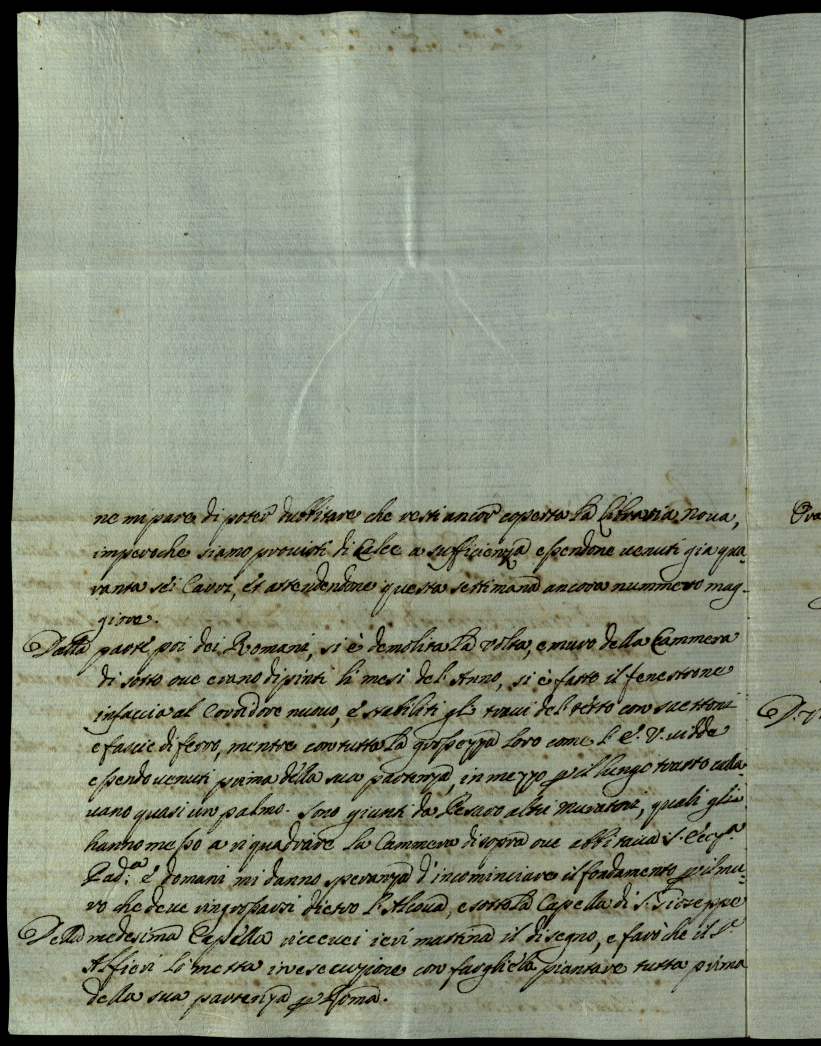 ne mi pare di poter dubbitare che resti ancor coperta la Libraria nova,
imperoche siamo provisti di Calce a sufficienza essendone venuti gia qua-
ranta sei Carri, et attendendone questa settimana ancora nummero mag-
giore.
Dalla parte poi dei Romani, si è demolita la volta, e muro della Cammera
di sotto ove erano dipinti li mesi del Anno, si è fatto il fenestrone
infaccia al Corridore nuovo, e stabiliti gli travi del tetto con saettoni
e fascie di ferro, mentre con tutta la grossezza loro come l'E. V. vidde
essendo venuti prima della sua partenza, in mezzo p il lungo tratto calla-
vano quasi un palmo. Sono giunti da Pesaro altri Muratori, quali gli
hanno messo a riquadrare la Cammera disopra ove abbitava S. Ecc.
Pad.a e domani mi danno speranza d'incominciare il fondamento p il mu-
ro che deve ringrossarsi dietro l'Alcova, e sotto la Capella di S. Gioseppe
Della medesima Capella ricevei ieri mattina il disegno, e farò che il S.r
Alfieri lo metta in esecuzione con fargliela piantare tutta prima
della sua partenza p Roma.
Ora